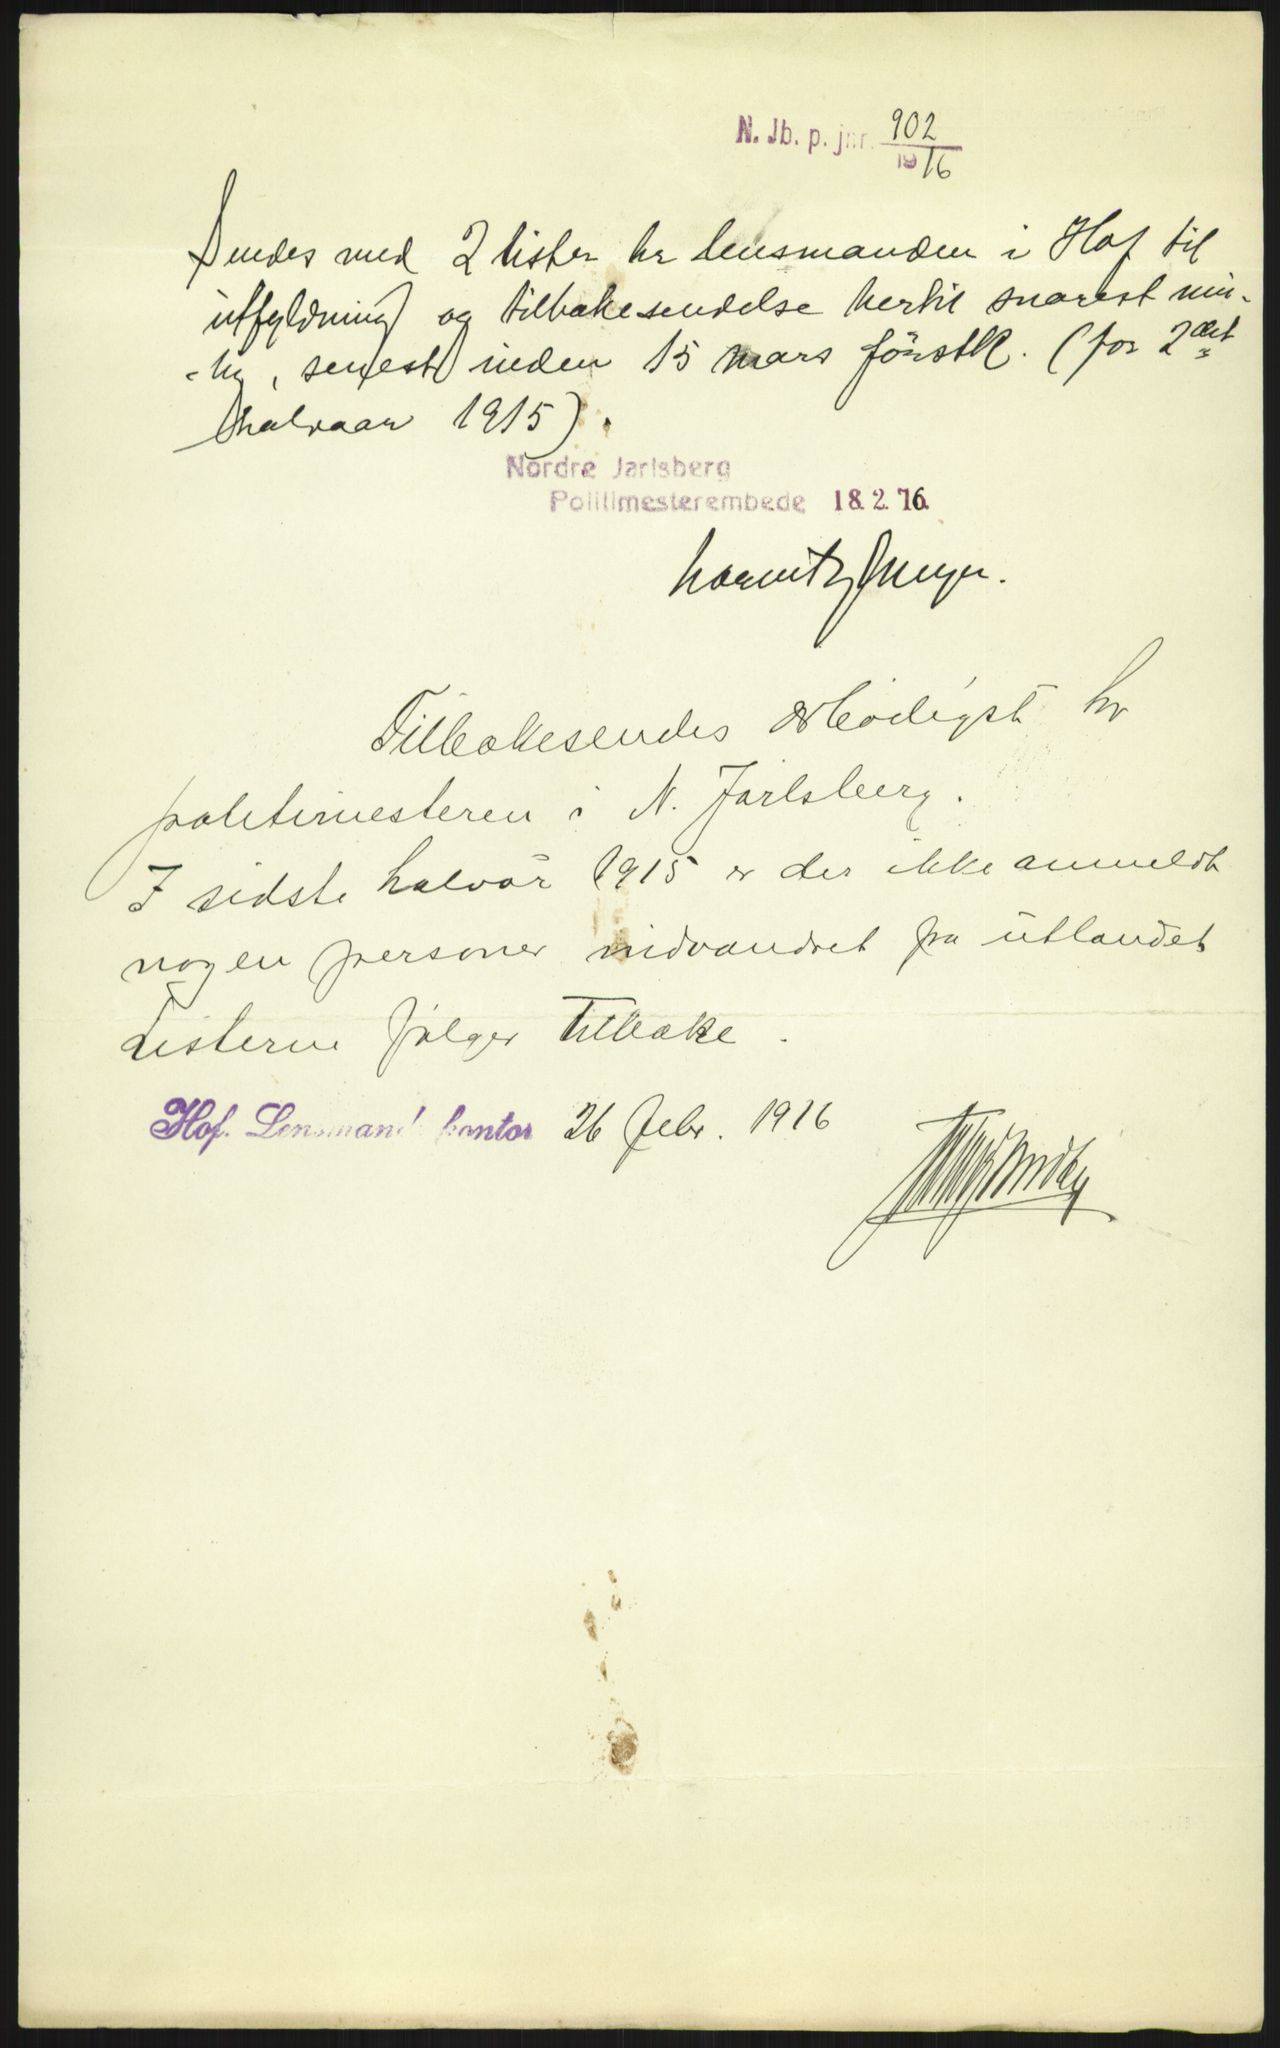 N. Jb. p. jnr. 902
1916
Sendes med 2 lister hr lensmanden i Hof til
utfyldning og tilbakesendelse hertil snarest mu-
-lig, senest inden 15 mars førstk. (for 2det
halvaar 1915).
Nordre Jarlsberg
Politimesterembede 18.2.16.
Tilbakesendes ærbödigst hr
politimesteren i N. Jarlsberg.
I sidste halvår 1915 er der ikke anmeldt
nogen personer indvandret fra utlandet
Listerne følger tilbake.
Hof. Lensmand kontor 26 febr. 1916